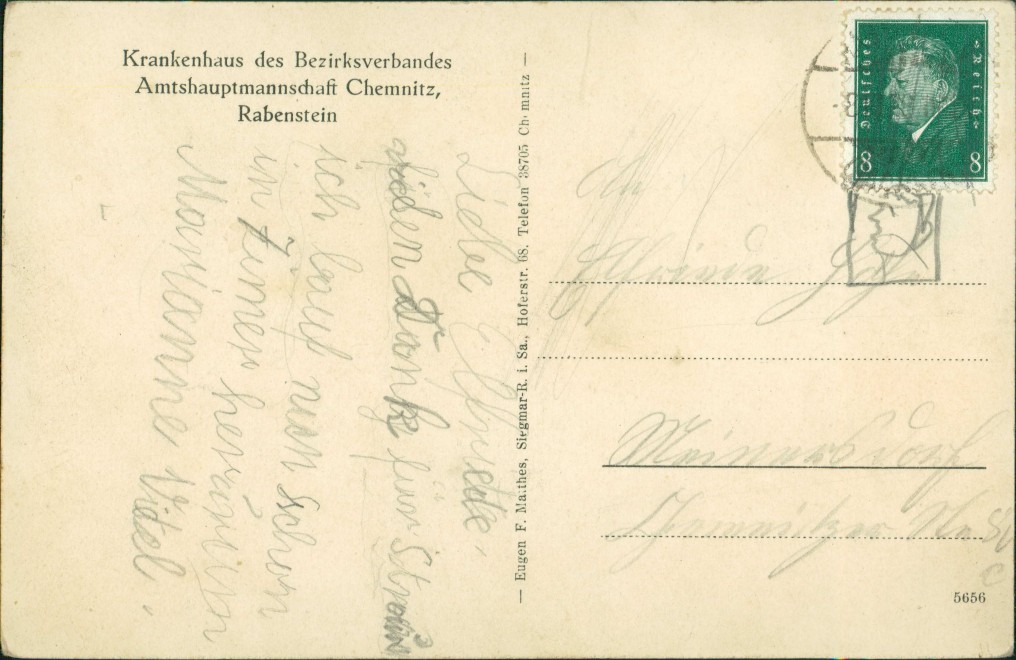 Krankenhaus des Bezirksverbandes
Amtshauptmannschaft Chemnitz,
Rabenstein
Liebe Elfriede.
vielen Dank für
ich lauf nun schon
im Zimer herum
Marianne
— Eugen F. Matthes, Siegmar-R. i. Sa., Hoferstr. 68. Telefon 38705 Chemnitz —
Deutsches Reich
8 8
An
Elfriede
Meinersdorf
Chemnitzer
5656